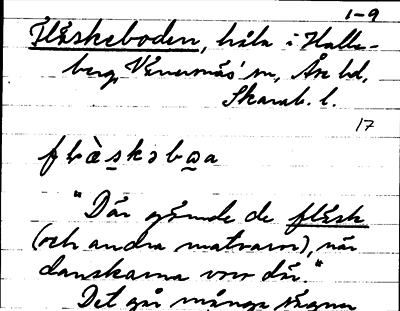 1-9
Fläskeboden, håla i Halle-
berg, Vänersnäs' sn, Åse hd,
Skarab. l.
17
"Där gömde de fläsk
(och andra matvaror), när
danskarna voro där."
Det går många sägner